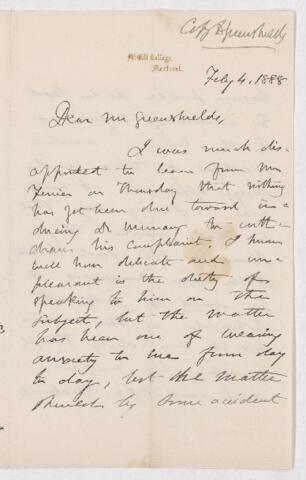 Copy Greenshields
McGill College,
Montreal.
Feby 4, 1888
Dear Mr Greenshields,
I was much dis-
appointed to learn from Mr
on Thursday that nothing
has yet been done toward in-
ducing Dr Murray to with-
draw his complaint. I know
well how delicate and un-
pleasant is the duty of
speaking to him on the
subject, but the matter
has been one of wearing
anxiety to me from day
to day, lest the matter
should by some accident